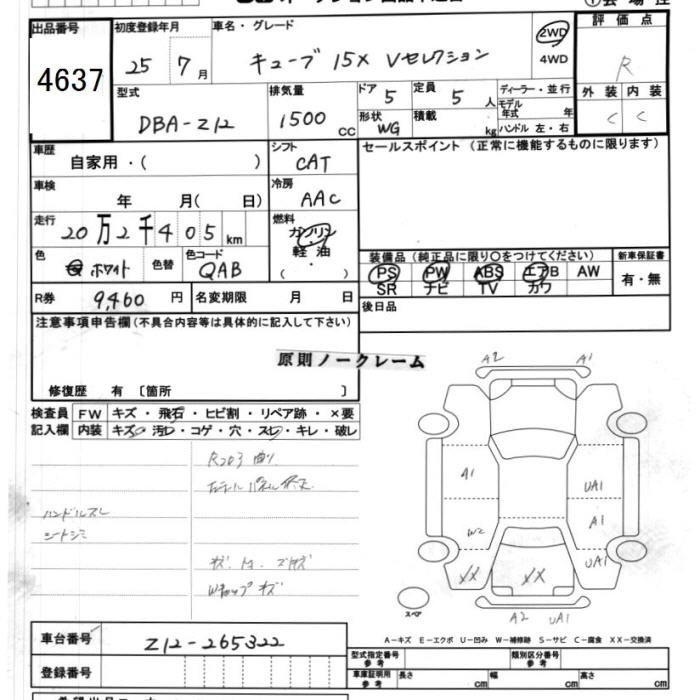 出品番号 初度登録年月 車名・グレード 評価点
4637 25 7月 キューブ 15X Vセレクション 2WD 4WD R
型式 排気量 ドア 5 定員 5人 ディーラー・並行 外装 内装
DBA-Z12 1500cc 形状 WG 積載 kg モデル年式 年 C C
ハンドル 左・右
車歴 シフト セールスポイント(正常に機能するものに限ります)
自家用・( ) CAT
車検 冷房
年 月( 日) AAC
走行 燃料
20万2千405km ガソリン
色 ホワイト 色替 色コード QAB 軽油
・( )
装備品(純正品に限り〇をつけてください) 新車保証書
PS PW ABS エアB AW 有・無
SR ナビ TV カワ
R券 9,460円 名変期限 月 日 後日品
注意事項申告欄(不具合内容等は具体的に記入して下さい)
原則ノークレーム
修復歴 有 〔箇所 〕
検査員 FW キズ・飛石・ヒビ割・リペア跡・×要
記入欄 内装 キズ・汚レ・コゲ・穴・スレ・キレ・破レ
ハンドルスレ
シートシミ
A2 A1
A1 UA1
A1
W2 UA1
XX XX
スペア
A2 UA1
A-キズ E-エクボ U-凹み W-補修跡 S-サビ C-腐食 XX-交換済
車台番号 Z12-265322
登録番号
型式指定番号 参考 類別区分番号 参考
車庫証明用 参考 長さ cm 幅 cm 高さ cm